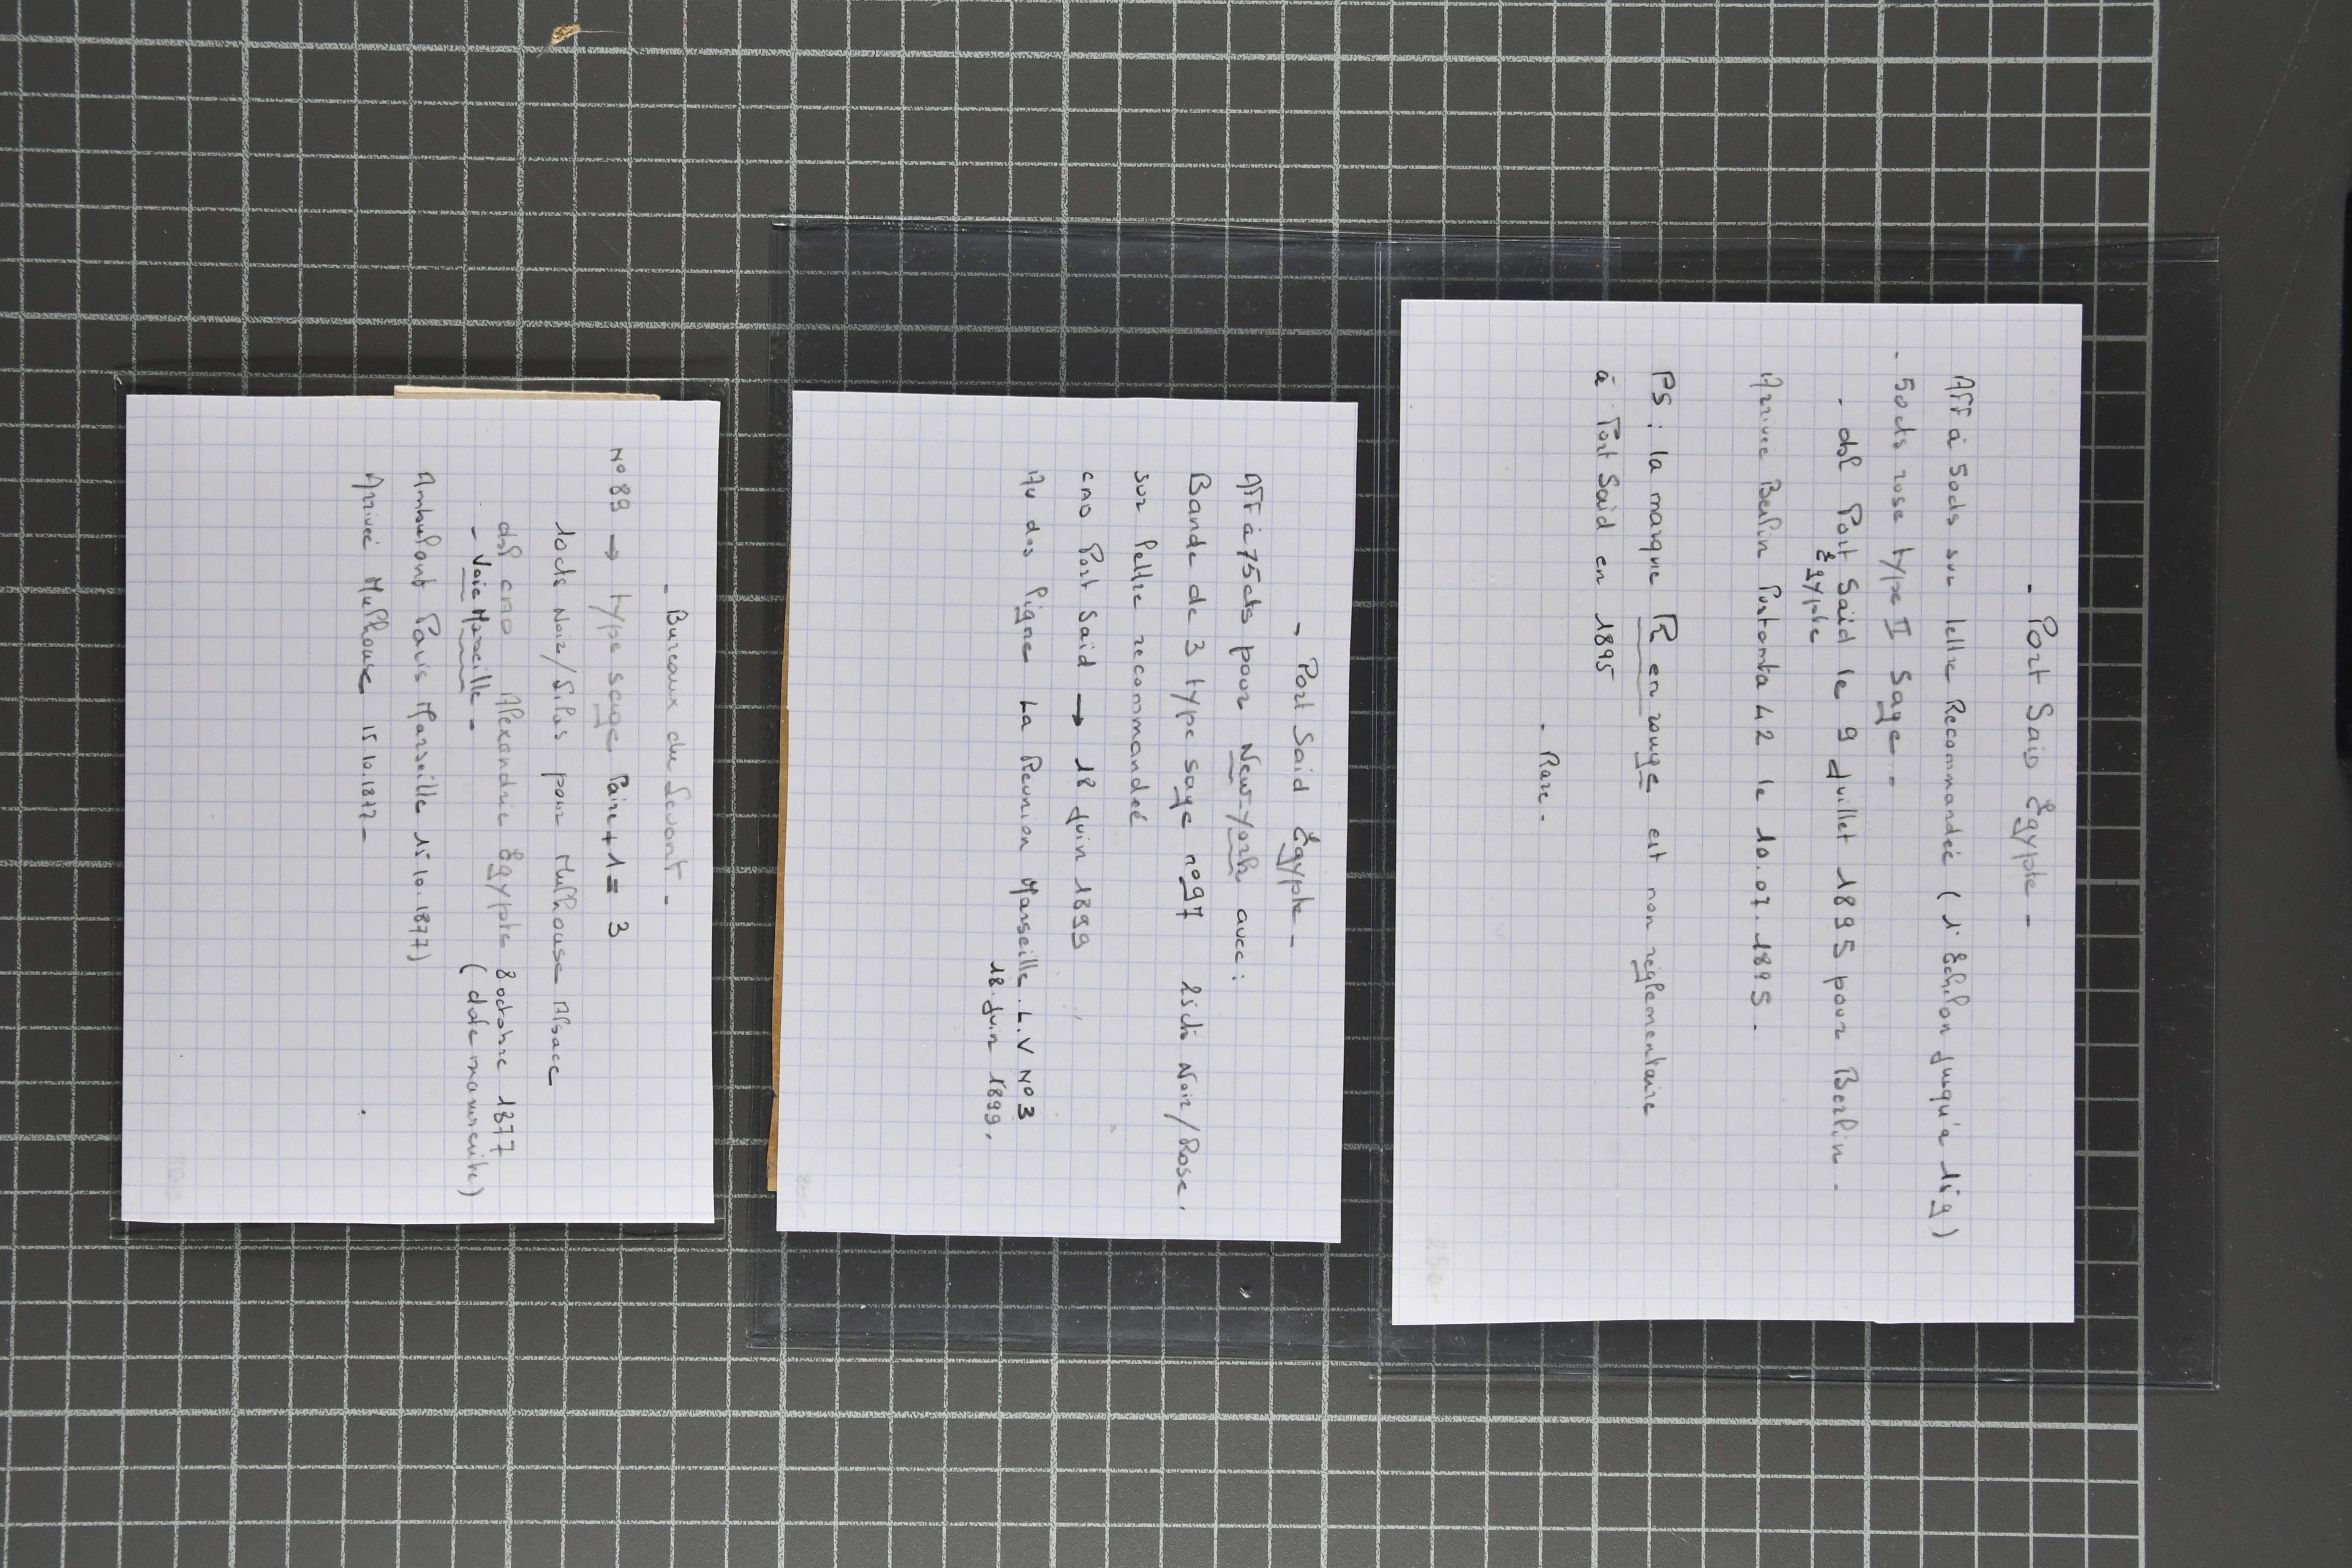 - Port Said Égypte -
Aff à 50cts sur lettre Recommandée ( 1° Echelon jusqu'a 15g )
- 50cts rose type II Sage -
- dsl Port Said le 9 Juillet 1895 pour Berlin -
Égypte
Arrivée Berlin Postamta 42 le 10.07.1895 -
PS : la marque R en rouge est non réglementaire
à Port Said en 1895
- Rare -
250-
- Port Said Égypte -
Aff à 75cts pour New-York avec :
Bande de 3 type sage n°97 25cts Noir/Rose.
sur lettre recommandeé
cmo Port Said → 18 Juin 1899
Au dos Ligne La Reunion Marseille. L.V N°3
18 Juin 1899.
- Bureaux du Levant -
N° 89 → type sage Paire + 1 = 3
10cts Noir/Lilas pour Mulhouse Alsace
dsl cmo Alexandrie Égypte 8 octobre 1877
- Voie Marseille - ( date manuscrite)
Ambulant Paris Marseille 15.10.1877)
Arrivé Mulhouse 15.10.1877 -